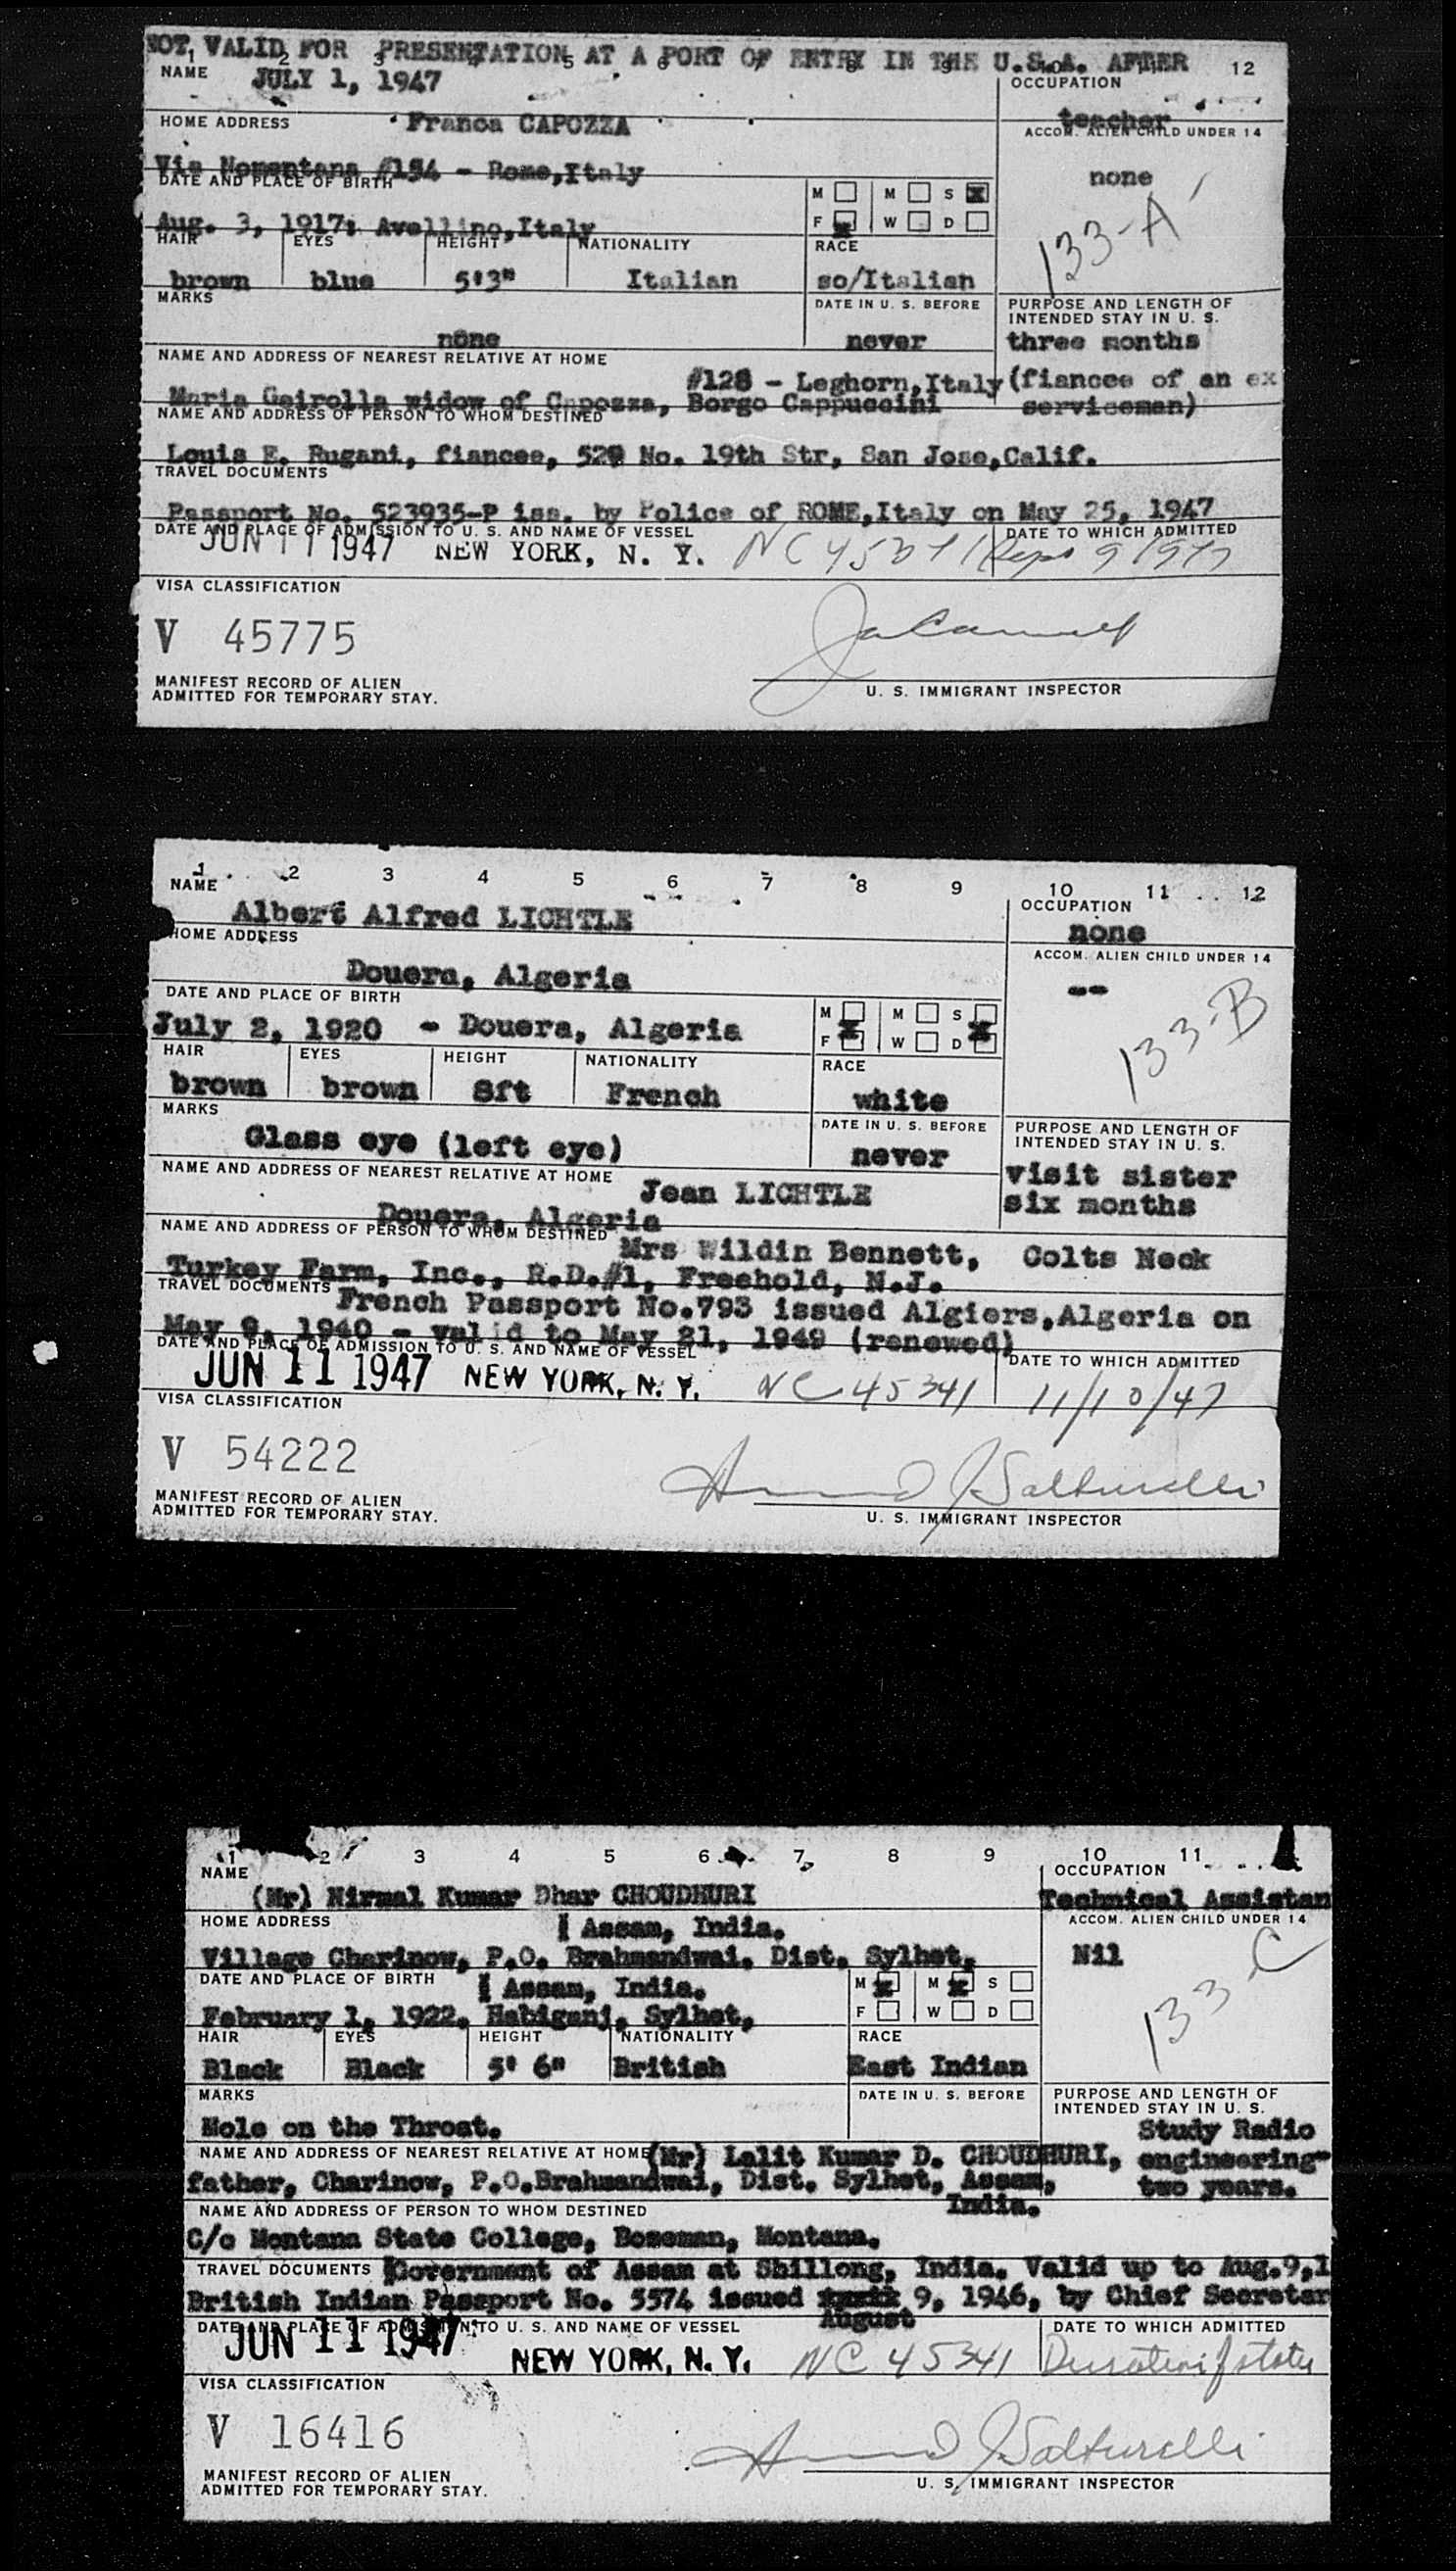 NOT VALID FOR PRESENTATION AT A PORT OF ENTRY IN THE U.S.A. AFTER
1 2 3 4 5 6 7 8 9 10 11 12
NAME JULY 1, 1947 OCCUPATION
Franca CAPOZZA teacher
HOME ADDRESS ACCOM. ALIEN CHILD UNDER 14
Via Nomentana #154 - Rome,Italy none
DATE AND PLACE OF BIRTH M M S
Aug. 3, 1917; Avellino,Italy F W D 133-A
HAIR EYES HEIGHT NATIONALITY RACE
brown blue 5'3" Italian so/Italian
MARKS DATE IN U. S. BEFORE PURPOSE AND LENGTH OF INTENDED STAY IN U. S.
none never three months
NAME AND ADDRESS OF NEAREST RELATIVE AT HOME
#128 - Leghorn,Italy (fiancee of an ex
Maria widow of Capozza, Borgo Cappuccini serviceman)
NAME AND ADDRESS OF PERSON TO WHOM DESTINED
Louis E. Rugani, fiancee, 529 No. 19th Str, San Jose,Calif.
TRAVEL DOCUMENTS
Passport No. 523935-P iss. by Police of ROME,Italy on May 25, 1947
DATE AND PLACE OF ADMISSION TO U. S. AND NAME OF VESSEL DATE TO WHICH ADMITTED
JUN 11 1947 NEW YORK, N. Y. NC 45341 Sept 9 1947
VISA CLASSIFICATION
V 45775
MANIFEST RECORD OF ALIEN
ADMITTED FOR TEMPORARY STAY.
U. S. IMMIGRANT INSPECTOR
1 2 3 4 5 6 7 8 9 10 11 12
NAME OCCUPATION
Albert Alfred LICHTLE none
HOME ADDRESS ACCOM. ALIEN CHILD UNDER 14
Douera, Algeria --
DATE AND PLACE OF BIRTH M M S
July 2, 1920 - Douera, Algeria F W D 133-B
HAIR EYES HEIGHT NATIONALITY RACE
brown brown 8ft French white
MARKS DATE IN U. S. BEFORE PURPOSE AND LENGTH OF INTENDED STAY IN U. S.
Glass eye (left eye) never visit sister
NAME AND ADDRESS OF NEAREST RELATIVE AT HOME Jean LICHTLE six months
Douera, Algeria
NAME AND ADDRESS OF PERSON TO WHOM DESTINED Mrs Wildin Bennett, Colts Neck
Turkey Farm, Inc., R.D.#1, Freehold, N.J.
TRAVEL DOCUMENTS French Passport No.793 issued Algiers,Algeria on
May 9, 1940 - valid to May 21, 1949 (renewed)
DATE AND PLACE OF ADMISSION TO U. S. AND NAME OF VESSEL DATE TO WHICH ADMITTED
JUN 11 1947 NEW YORK, N. Y. NC 45341 11/10/47
VISA CLASSIFICATION
V 54222
MANIFEST RECORD OF ALIEN
ADMITTED FOR TEMPORARY STAY.
U. S. IMMIGRANT INSPECTOR
1 2 3 4 5 6 7 8 9 10 11
NAME OCCUPATION
(Mr) Nirmal Kumar Dhar CHOUDHURI Technical Assistan
HOME ADDRESS Assam, India. ACCOM. ALIEN CHILD UNDER 14
Village Charinow, P.O. Brahmandwai, Dist. Sylhet, Nil
DATE AND PLACE OF BIRTH Assam, India. M M S
February 1, 1922, Habiganj, Sylhet, F W D 133-C
HAIR EYES HEIGHT NATIONALITY RACE
Black Black 5' 6" British East Indian
MARKS DATE IN U. S. BEFORE PURPOSE AND LENGTH OF INTENDED STAY IN U. S.
Mole on the Throat. Study Radio
NAME AND ADDRESS OF NEAREST RELATIVE AT HOME (Mr) Lalit Kumar D. CHOUDHURI, engineering-
father, Charinow, P.O.Brahmandwai, Dist. Sylhet, Assam, two years.
NAME AND ADDRESS OF PERSON TO WHOM DESTINED India.
C/o Montana State College, Bozeman, Montana.
TRAVEL DOCUMENTS Government of Assam at Shillong, India. Valid up to Aug.9,1
British Indian Passport No. 5574 issued 9, 1946, by Chief Secretar
August
DATE AND PLACE OF ADMISSION TO U. S. AND NAME OF VESSEL DATE TO WHICH ADMITTED
JUN 11 1947 NEW YORK, N. Y. NC 45341 Duration of status
VISA CLASSIFICATION
V 16416
MANIFEST RECORD OF ALIEN
ADMITTED FOR TEMPORARY STAY.
U. S. IMMIGRANT INSPECTOR